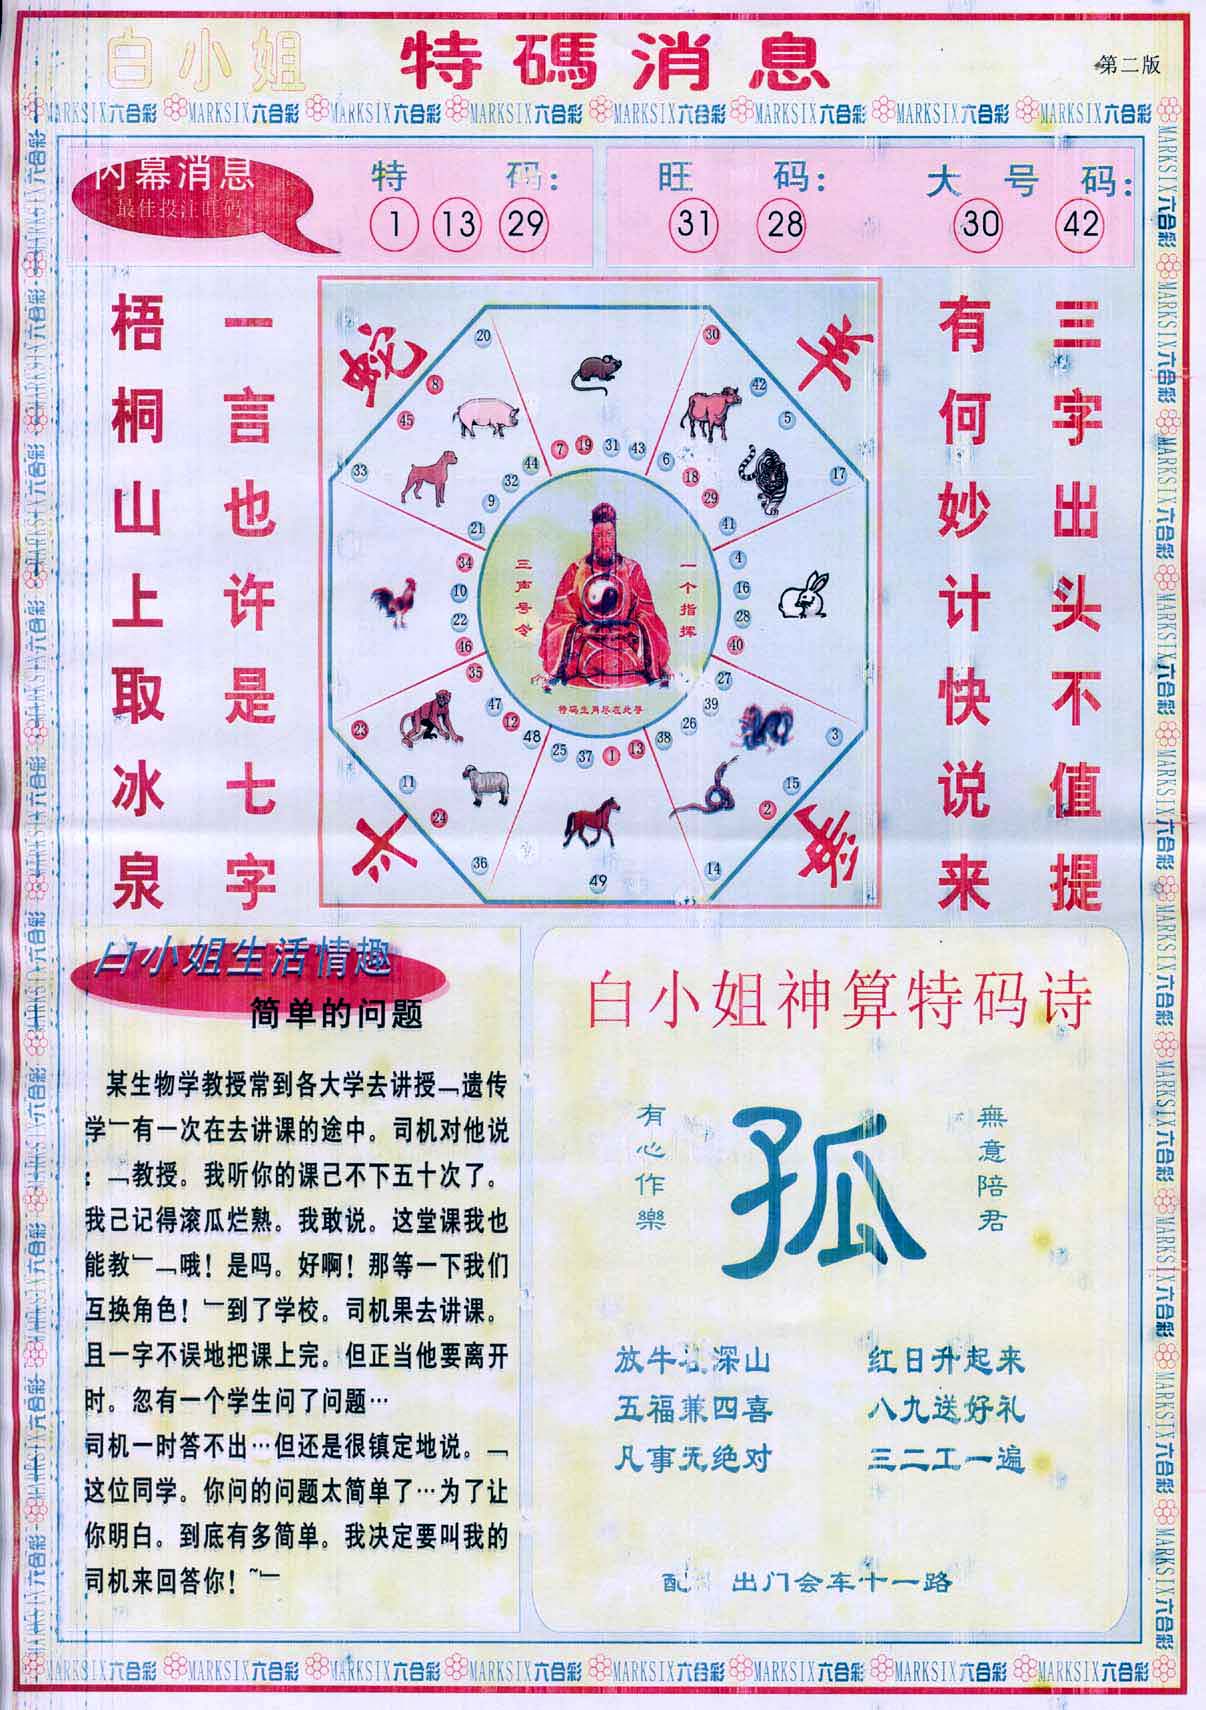 白小姐 特碼消息 第二版
MARKSIX六合彩 MARKSIX六合彩 MARKSIX六合彩 MARKSIX六合彩 MARKSIX六合彩 MARKSIX六合彩 MARKSIX六合彩 MARKSIX六合彩
内幕消息
最佳投注旺码
特 码:
1 13 29
旺 码:
31 28
大 号 码:
30 42
三字出头不值提
有何妙计快说来
一言也许是七字
梧桐山上取冰泉
蛇
羊
20
8
45
33
30
42
5
17
7 19 31 43
44
32
9
21
6
18
29
41
34
10
22
46
4
16
28
40
35
47
12
48
27
39
26
38
25 37 1 13
23
11
24
36
49
14
2
15
3
三声号令
一个指挥
特码生肖尽在此督
白小姐生活情趣
简单的问题
某生物学教授常到各大学去讲授﹁遗传
学﹂有一次在去讲课的途中。司机对他说
：﹁教授。我听你的课己不下五十次了。
我己记得滚瓜烂熟。我敢说。这堂课我也
能教﹂﹁哦！是吗。好啊！那等一下我们
互换角色！﹂到了学校。司机果去讲课。
且一字不误地把课上完。但正当他要离开
时。忽有一个学生问了问题…
司机一时答不出…但还是很镇定地说。﹁
这位同学。你问的问题太简单了…为了让
你明白。到底有多简单。我决定要叫我的
司机来回答你！~﹂
白小姐神算特码诗
有心作樂
孤
無意陪君
放牛 深山 红日升起来
五福兼四喜 八九送好礼
凡事无绝对 三二工一遍
配 出门会车十一路
MARKSIX六合彩 MARKSIX六合彩 MARKSIX六合彩 MARKSIX六合彩 MARKSIX六合彩 MARKSIX六合彩 MARKSIX六合彩 MARKSIX六合彩